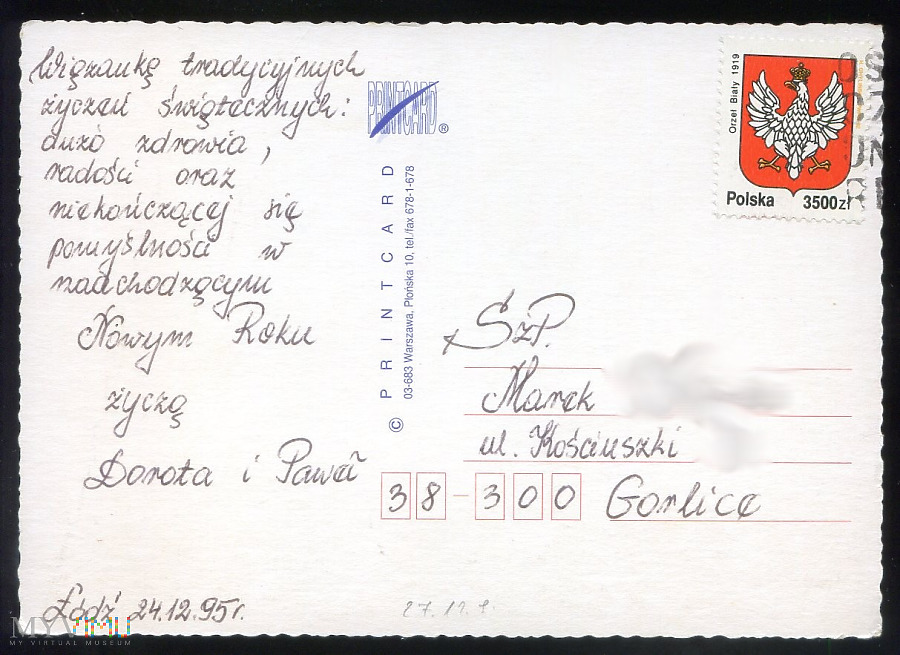 Wiązankę tradycyjnych
życzeń świątecznych:
dużo zdrowia,
radości oraz
niekończącej się
pomyślności w
nadchodzącym
Nowym Roku
życzą
Dorota i Paweł
Łódź 24.12.95r.
PRINTCARD ®
© PRINTCARD
03-683 Warszawa, Płońska 10, tel./fax 678-1-678
Orzeł Biały 1919
Polska 3500zł
SzP.
Marek
ul. Kościuszki
38-300 Gorlice
MYVIMU
MY VIRTUAL MUSEUM